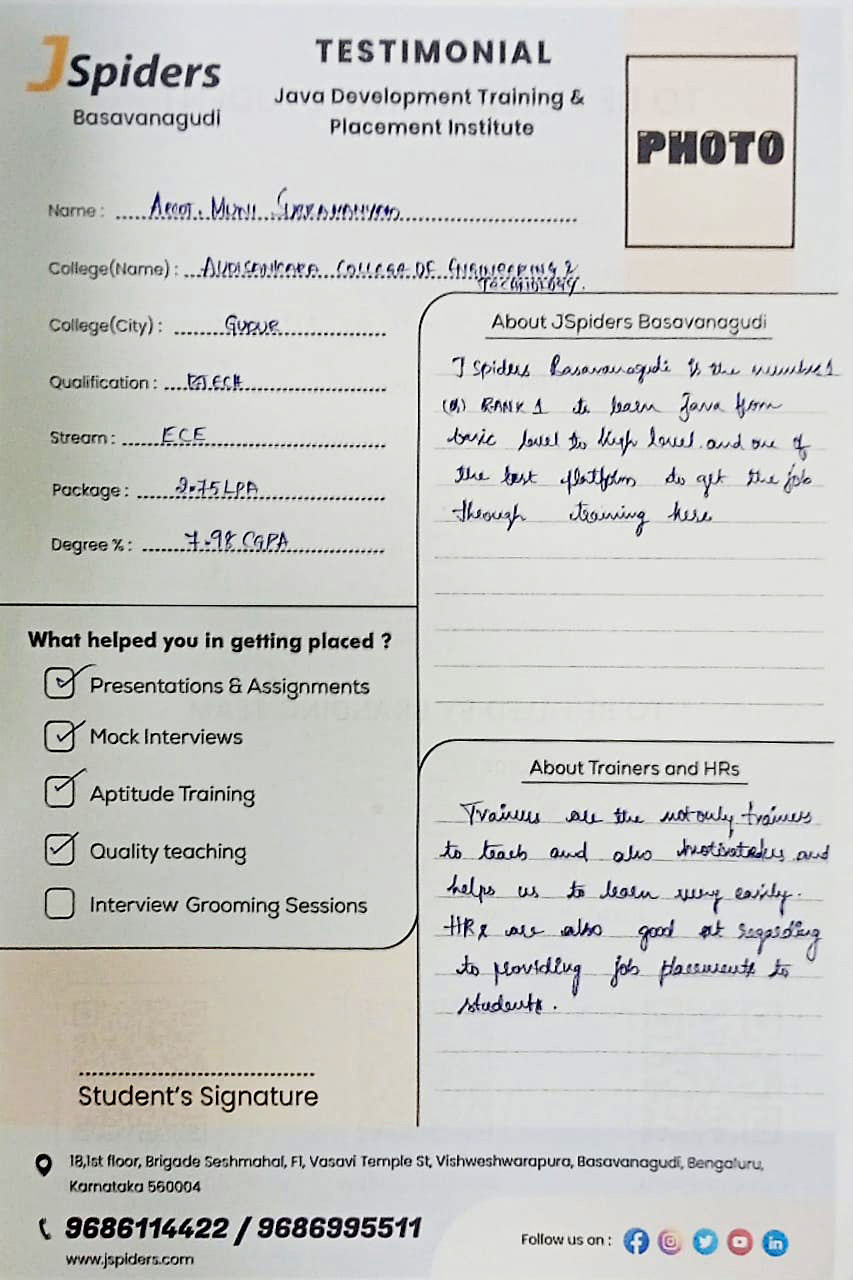 JSpiders
Basavanagudi
TESTIMONIAL
Java Development Training &
Placement Institute
PHOTO
Name : Arot. Muni Subramanyam
College(Name) : AUDISANKARA COLLEGE OF ENGINEERING &
TECHNOLOGY.
College(City) : GUDUR
Qualification : BTECH
Stream : ECE
Package : 2.75LPA
Degree % : 7.98 CGPA
What helped you in getting placed ?
Presentations & Assignments
Mock Interviews
Aptitude Training
Quality teaching
Interview Grooming Sessions
Student's Signature
About JSpiders Basavanagudi
J Spiders Basavanagudi is the number 1
(or) RANK 1 to learn Java from
basic level to high level. and one of
the best platform do get the job
through training here
About Trainers and HRs
Trainers are the not only trainers
to teach and also motivates us and
helps us to learn very easily.
HRs are also good at regarding
to providing job placements to
students.
18,1st floor, Brigade Seshmahal, F1, Vasavi Temple St, Vishweshwarapura, Basavanagudi, Bengaluru,
Karnataka 560004
9686114422 / 9686995511
www.jspiders.com
Follow us on :